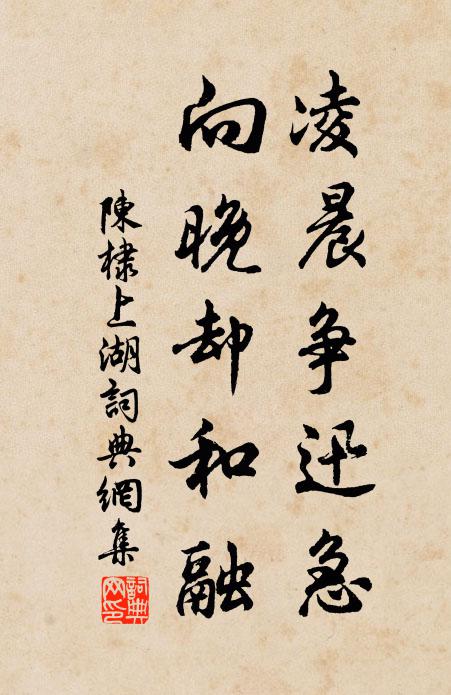 凌晨争迅急
向晚却和融
陳棣上湖詞典網集
詞典網印